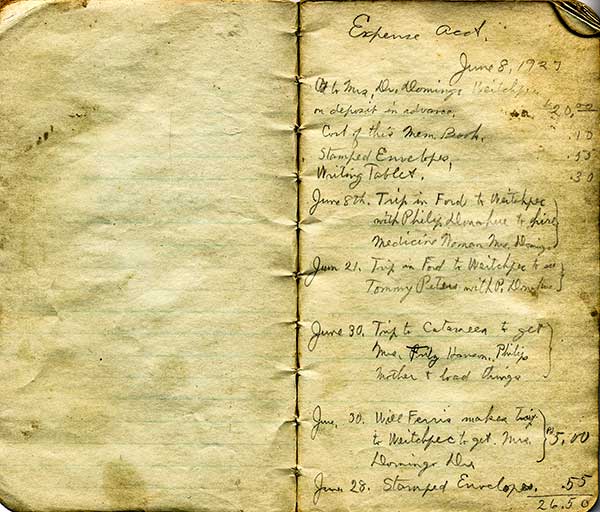 Expense Acct.
June 8, 1927
to Mrs, Dr. Domingo Weitchpec
on deposit in advance, $20.00
Cost of this Mem. Book. .10
Stamped Envelopes, .55
Writing Tablet. .30
June 8th. Trip in Ford to Weitchpec
with Philip Donahue to hire
Medicine Woman Mrs. Domingo
June 21. Trip in Ford to Weitchpec to see
Tommy Peters with P. Donahue
June 30. Trip to to get
Mrs. Philip
Mother & load things
June, 30. Will Ferris makes trip
to Weitchpec to get Mrs. $5,00
Domingo Dr.
June 28. Stamped Envelopes. .55
26.50